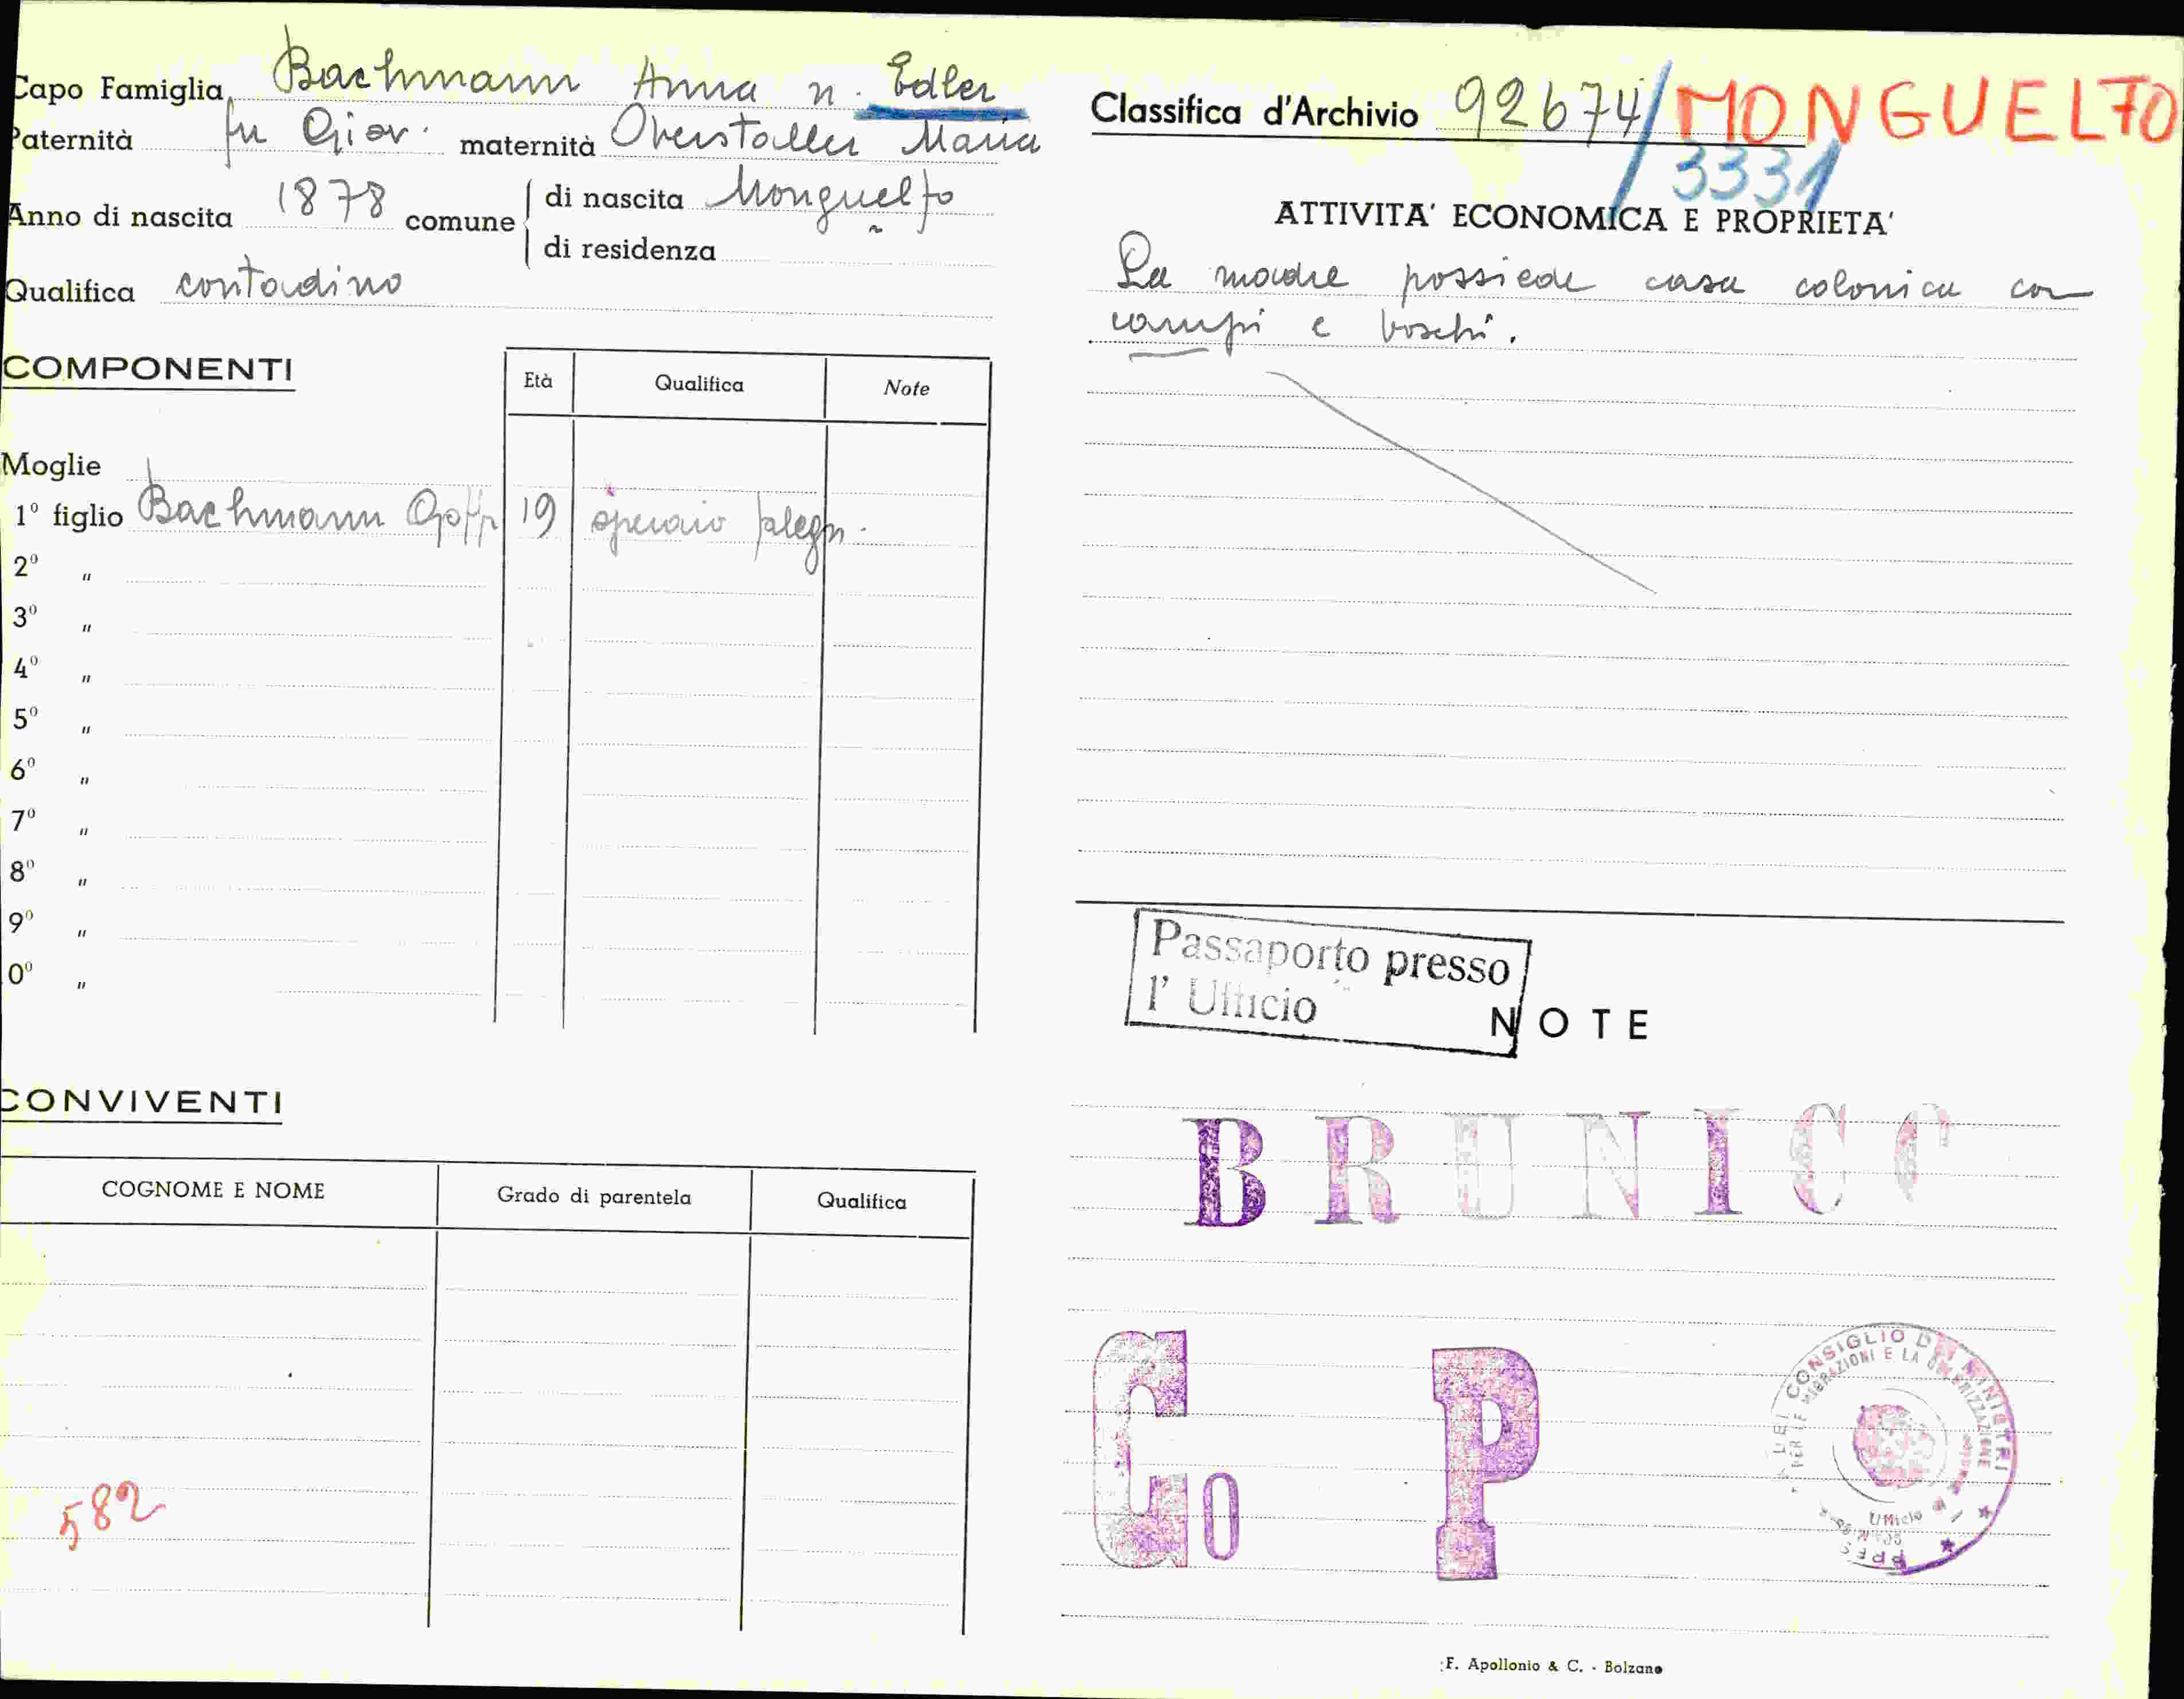 Capo Famiglia Bachmann Anna n. Edler
Paternità fu Giov. maternità Oberstaller Maria
Anno di nascita 1878 comune di nascita Monguelfo
di residenza
Qualifica contadino
COMPONENTI
Età Qualifica Note
Moglie
1º figlio Bachmann Goffr 19 operaio falegn.
2º "
3º "
4º "
5º "
6º "
7º "
8º "
9º "
0º "
CONVIVENTI
COGNOME E NOME Grado di parentela Qualifica
582
Classifica d'Archivio 92674/MONGUELFO
3331
ATTIVITA' ECONOMICA E PROPRIETA'
La madre possiede casa colonica con
campi e boschi.
Passaporto presso
l' Ufficio
NOTE
BRUNICO
Co P
CONSIGLIO DEI MINISTRI
PER LE MIGRAZIONI E LA
Ufficio
F. Apollonio & C. - Bolzano